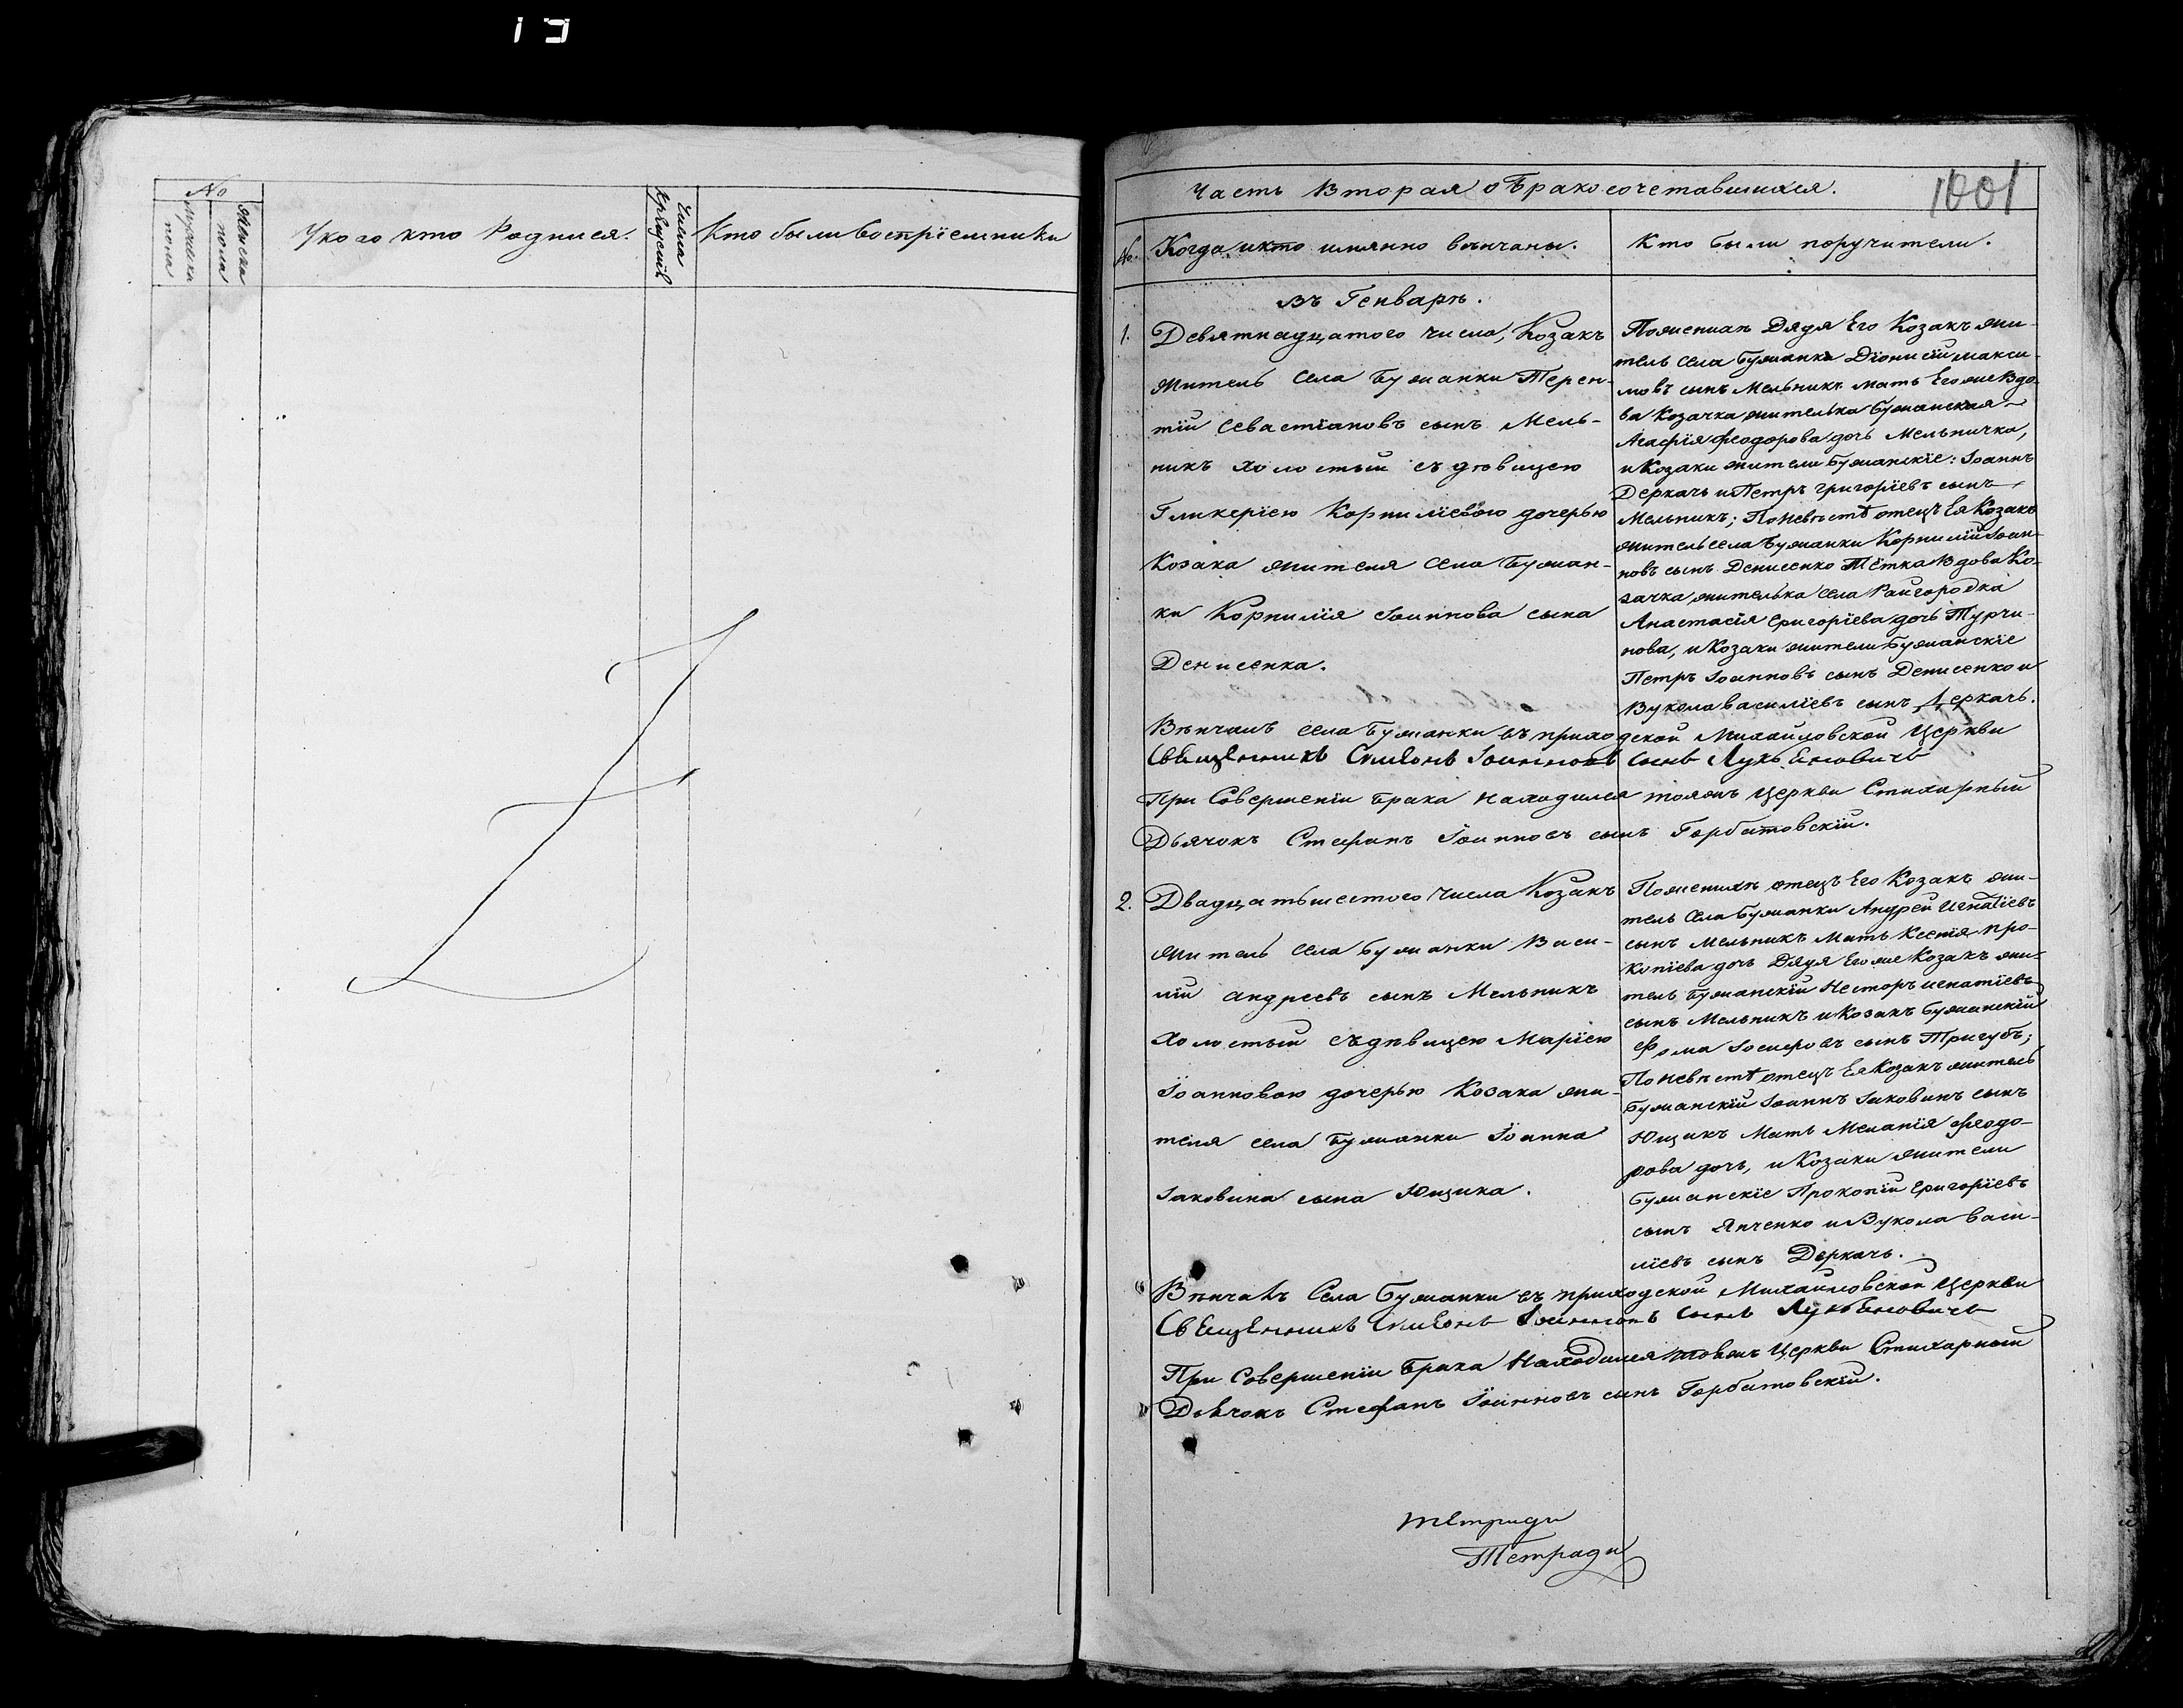 №
Мужеска пола
Женска пола
У кого кто Родился.
Числа Крещенія
Кто были воспріемники
1001
Часть Вторая о Бракосочетавшихся.
№.
Когда и кто имянно вѣнчаны.
Кто были поручители.
въ Генварѣ.
1.
Девятнадцатого числа, Козакъ
житель села Бужанки Терен-
тій Севастіановъ сынъ Мель-
никъ холостый съ дѣвицею
Гликеріею Корниліевою дочерью
Козака жителя села Бужан-
ки Корнилія Іоаннова сына
Денисенка.
По женихѣ Дядя Его Козакъ жи-
тель села Бужанки Діонисій макси-
мовъ сынъ Мельникъ мать Его же вдо-
ва Козачка жителька Бужанская
Агафія феодорова дочь Мельничка,
и Козаки жители Бужанскіе: Іоаннъ
Деркачь и Петръ григоріевъ сынъ
Мельникъ; По Невѣстѣ отецъ Ея Козакъ
житель села Бужанки Корнилій Іоан-
новъ сынъ Денисенко Тётка Вдова Ко-
зачка жителька села Райгородка
Анастасія григоріева дочь Турчи-
нова, и Козаки жители Бужанскіе
Петръ Іоанновъ сынъ Денисенко и
Вукола василіевъ сынъ Деркачь.
Вѣнчалъ села Бужанки въ приходской Михайловской Церкви
Священникъ Симеонъ Іоанновъ Сынъ Лукъяновичъ
При Совершеніи Брака Находился тояжъ Церкви Стихарный
Дьячокъ Стефанъ Іоанновъ сынъ Горбатовскій.
2.
Двадцать шестого Числа Козакъ
житель села Бужанки Васи-
лій андреевъ сынъ Мельникъ
Холостый съ дѣвицею Маріею
Іоанновою дочерью Козака жи-
теля села Бужанки Іоанна
Іаковина сына Ющика.
По женихѣ отецъ Его Козакъ жи-
тель Села Бужанки Андрей Игнатіевъ
сынъ Мельникъ Мать Ксенія про-
копіева дочь Дядя Его же Козакъ жи-
тель Бужанскій Несторъ игнатіевъ
сынъ Мельникъ и Козакъ Бужанскій
Фома Іосифовъ сынъ Тригубъ;
По Невѣстѣ отецъ Ея Козакъ житель
Бужанскій Іоаннъ Іаковинъ сынъ
Ющикъ Мать Меланія феодо-
рова дочь, и Козаки жители
Бужанскіе Прокопій григоріевъ
сынъ Янченко и Вукола васи-
ліевъ сынъ Деркачь.
Вѣнчалъ Села Бужанки въ приходской Михайловской Церкви
Священникъ Симеонъ Іоанновъ Сынъ Лукъяновичъ
При Совершеніи Брака Находился тояжъ Церкви Стихарный
Дьячокъ Стефанъ Іоанновъ сынъ Горбатовскій.
тетради
Тетради